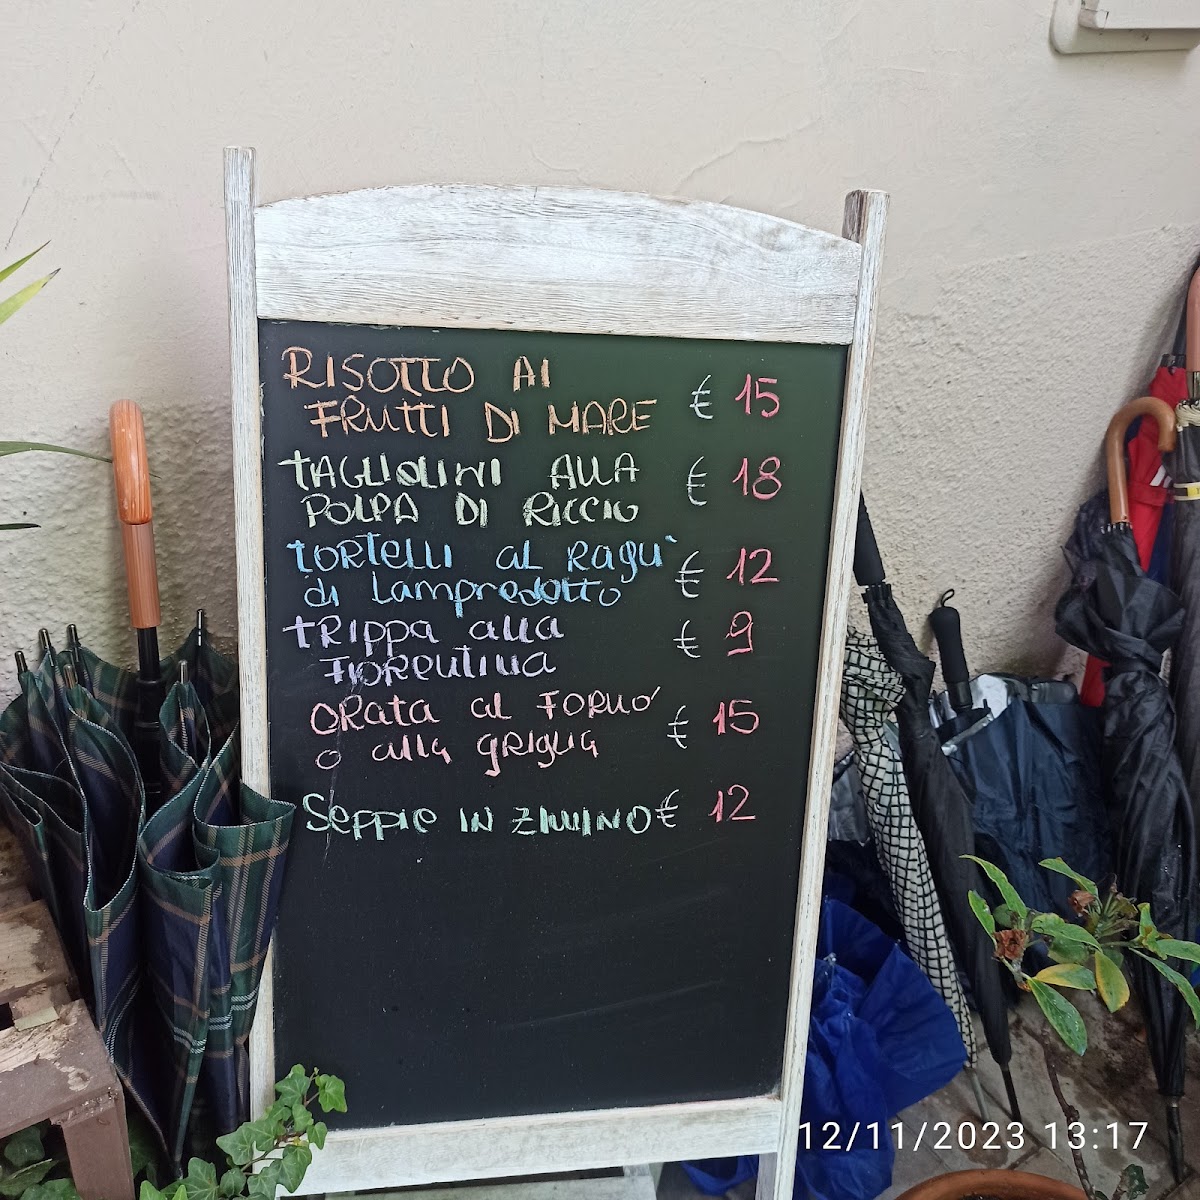 RISOTTO AI
FRUTTI DI MARE € 15
TAGLIOLINI ALLA
POLPA DI RICCIO € 18
TORTELLI AL RAGU'
di Lampredotto € 12
TRIPPA alla
FIORENTINA € 9
ORATA al FORNO
o alla GRIGLIA € 15
SEPPIE IN ZIMINO € 12
12/11/2023 13:17